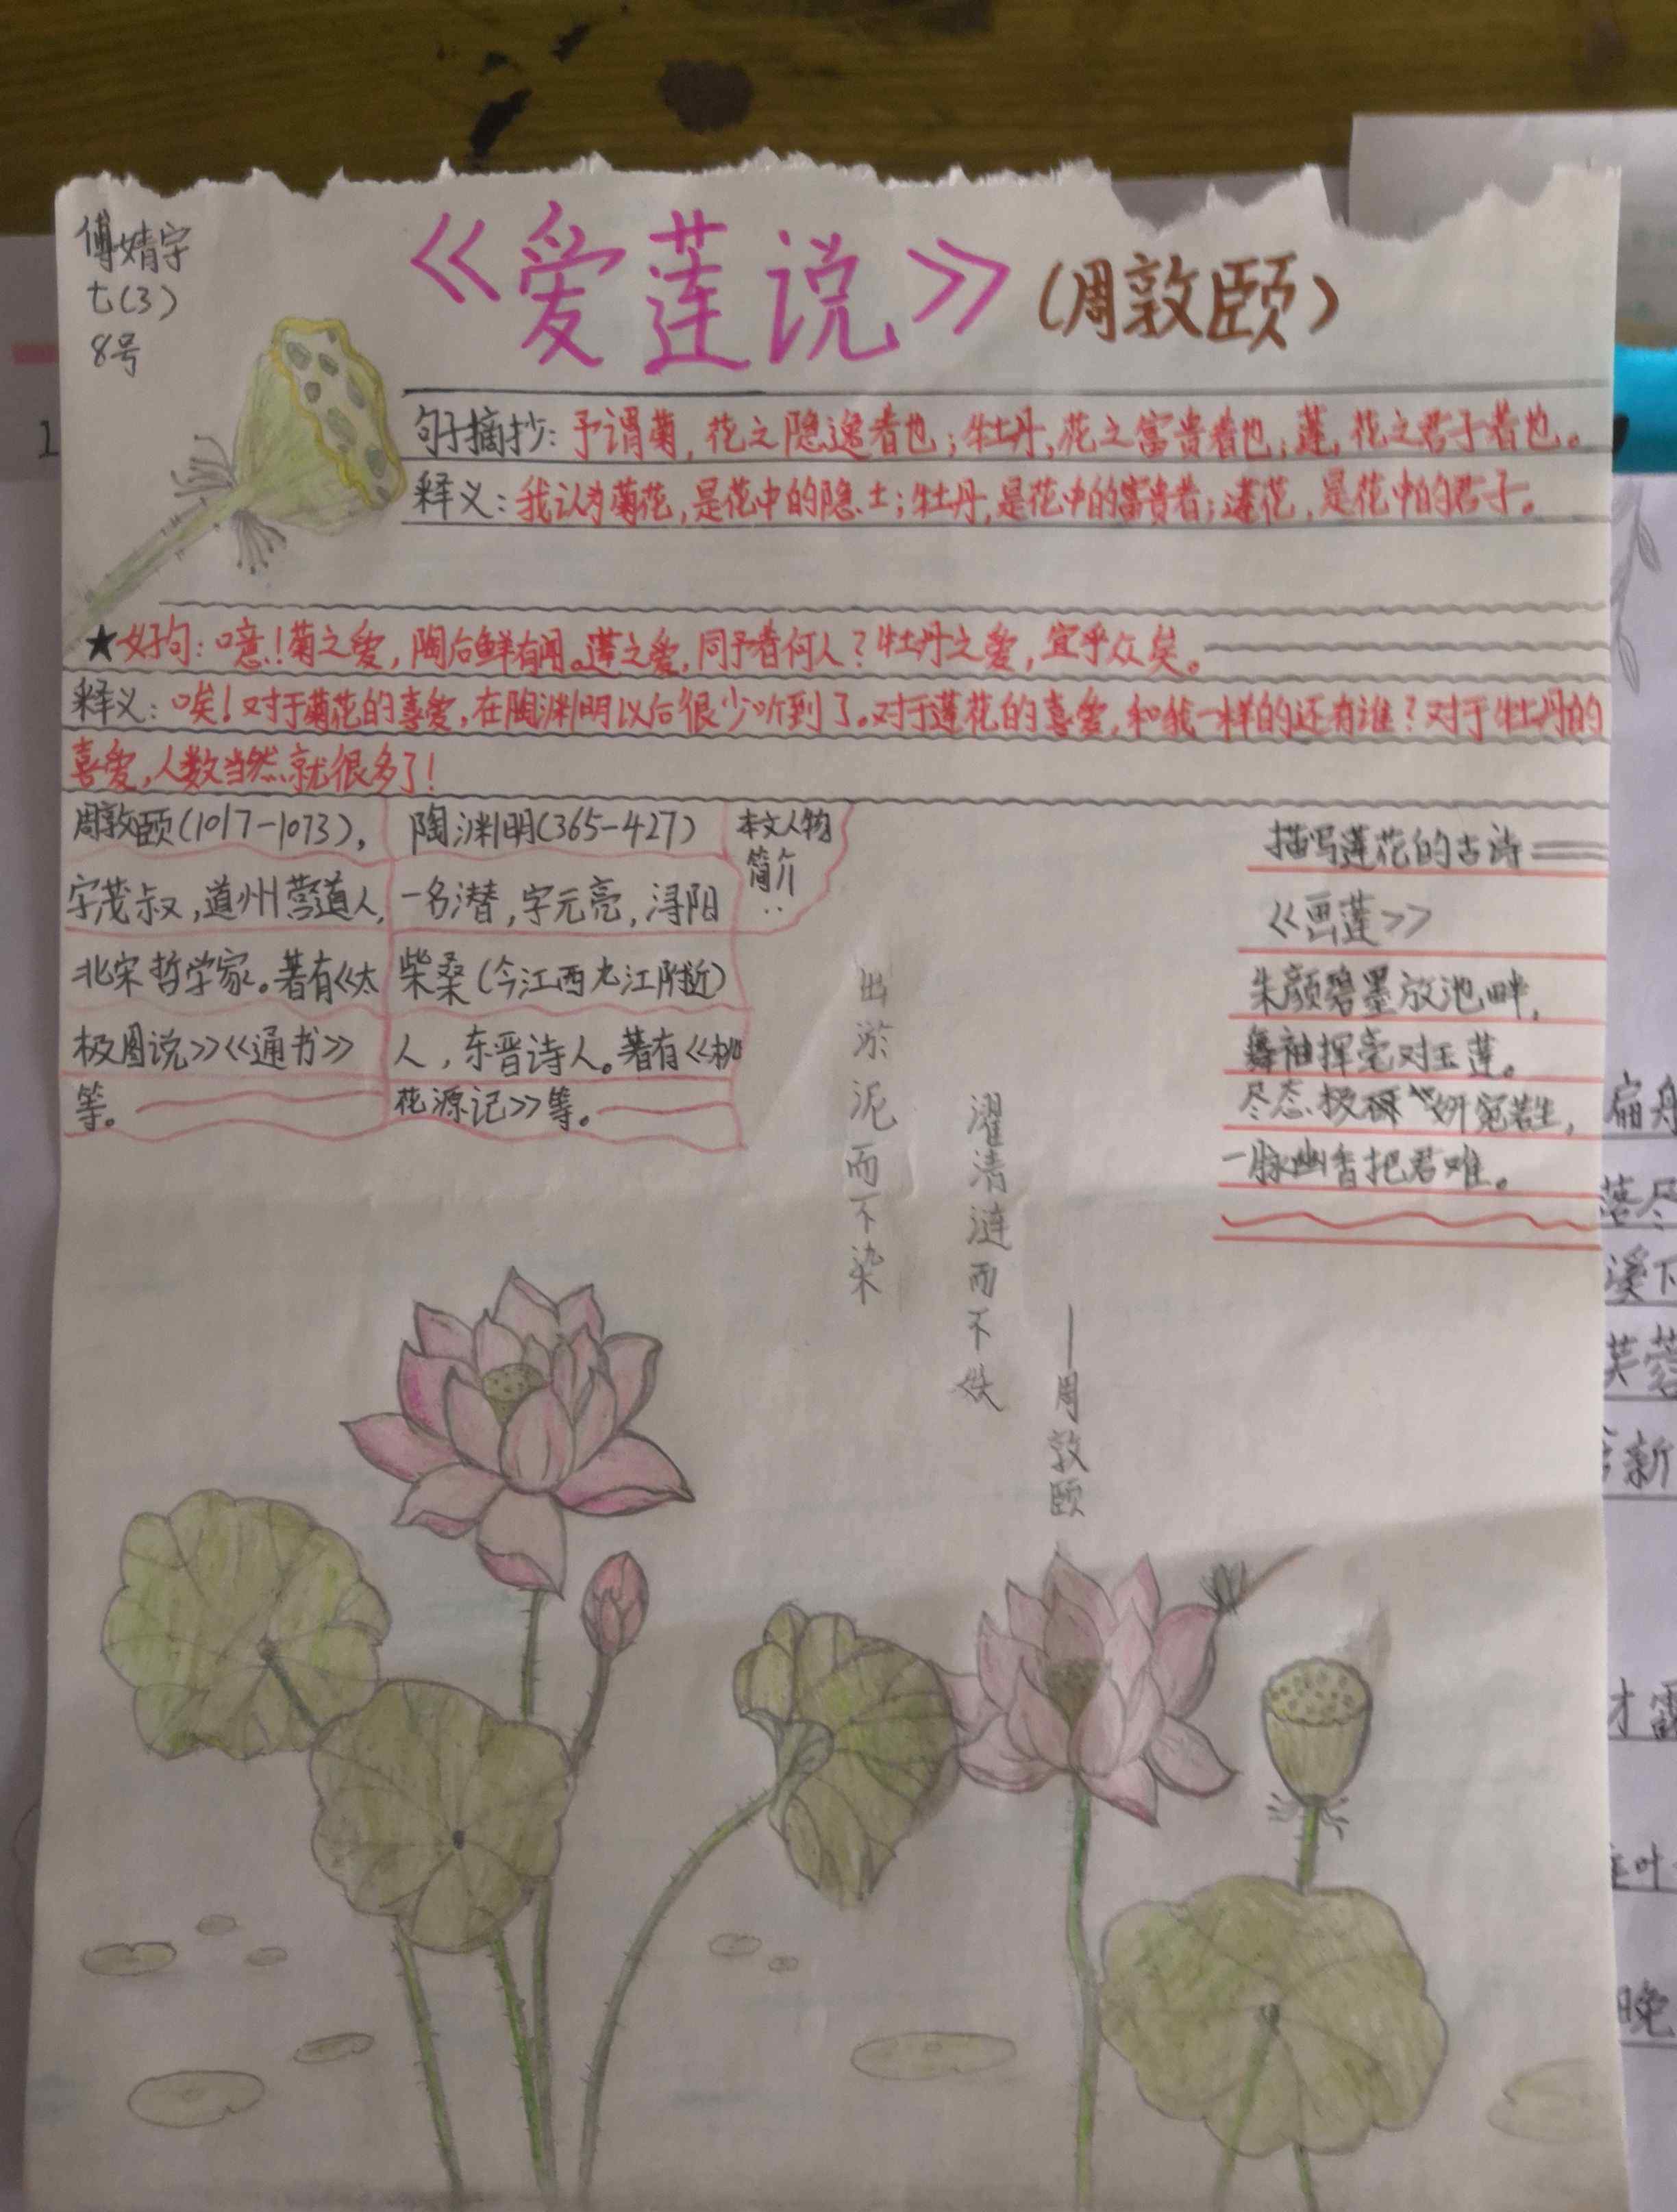 傅婧宇
七(3)
8号
《爱莲说》(周敦颐)
句子摘抄:予谓菊,花之隐逸者也;牡丹,花之富贵者也;莲,花之君子者也。
释义:我认为菊花,是花中的隐士;牡丹,是花中的富贵者;莲花,是花中的君子。
★好句:噫!菊之爱,陶后鲜有闻。莲之爱,同予者何人?牡丹之爱,宜乎众矣。
释义:唉!对于菊花的喜爱,在陶渊明以后很少听到了。对于莲花的喜爱,和我一样的还有谁?对于牡丹的
喜爱,人数当然就很多了!
周敦颐(1017-1073),
字茂叔,道州营道人,
北宋哲学家。著有《太
极图说》《通书》
等。
陶渊明(365-427)
一名潜,字元亮,浔阳
柴桑(今江西九江附近)
人,东晋诗人。著有《桃
花源记》等。
本文人物
简介
:
出淤泥而不染
濯清涟而不妖
——周敦颐
描写莲花的古诗
《画莲》
朱颜碧墨放池畔,
舞袖挥毫对玉莲。
尽态极妍宛若生,
一脉幽香把君难。
扁舟
落尽
溪下
芙蓉
新
才露
叶
晚